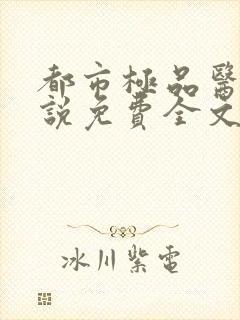 都市極品醫
說免費全文
冰川紫電